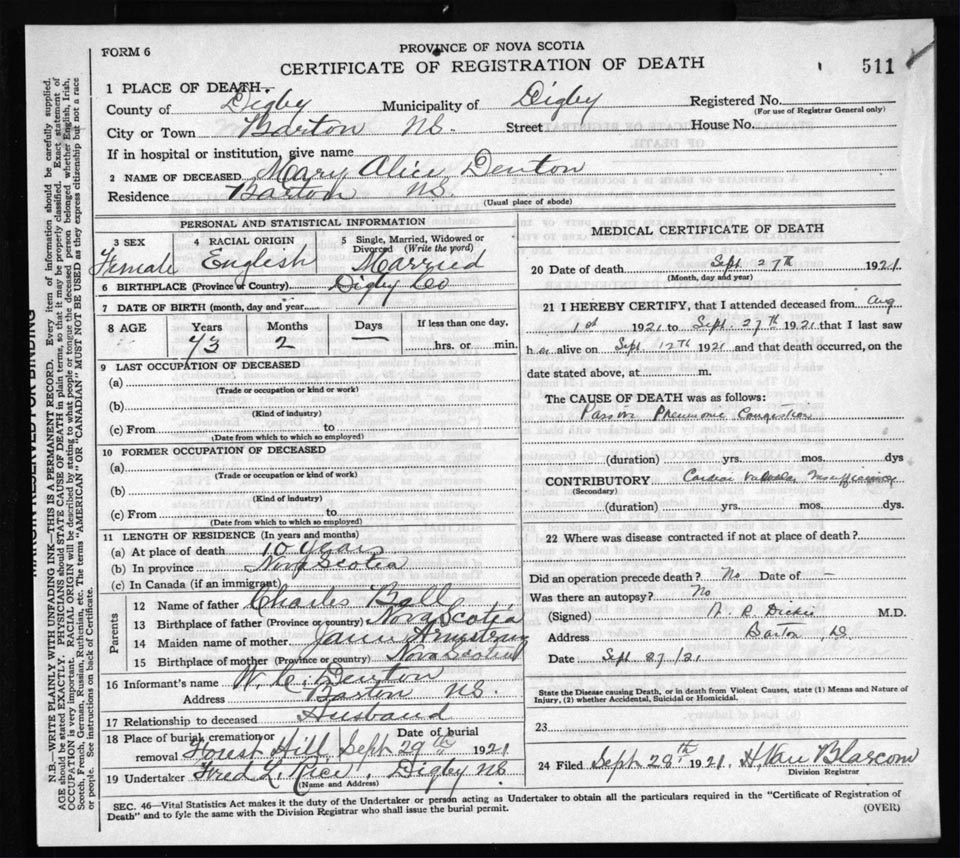 FORM 6
PROVINCE OF NOVA SCOTIA
CERTIFICATE OF REGISTRATION OF DEATH
511
1 PLACE OF DEATH.
County of Digby Municipality of Digby Registered No.
(For use of Registrar General only)
City or Town Barton NS. Street House No.
If in hospital or institution, give name
2 NAME OF DECEASED Mary Alice Denton
Residence Barton NS.
(Usual place of abode)
PERSONAL AND STATISTICAL INFORMATION
3 SEX Female
4 RACIAL ORIGIN English
5 Single, Married, Widowed or Divorced (Write the word) Married
6 BIRTHPLACE (Province or Country) Digby Co
7 DATE OF BIRTH (month, day and year)
8 AGE Years Months Days If less than one day,
73 2 — hrs. or min.
9 LAST OCCUPATION OF DECEASED
(a)
(Trade or occupation or kind or work)
(b)
(Kind of industry)
(c) From to
(Date from which to which so employed)
10 FORMER OCCUPATION OF DECEASED
(a)
(Trade or occupation or kind of work)
(b)
(Kind of industry)
(c) From to
(Date from which to which so employed)
11 LENGTH OF RESIDENCE (In years and months)
(a) At place of death 10 years
(b) In province Nova Scotia
(c) In Canada (if an immigrant)
Parents
12 Name of father Charles Ball
13 Birthplace of father (Province or country) Nova Scotia
14 Maiden name of mother Jane Armstrong
15 Birthplace of mother (Province or country) Nova Scotia
16 Informant's name W. C. Denton
Address Barton NS.
17 Relationship to deceased Husband
18 Place of burial, cremation or removal Forest Hill Date of burial Sept 29th 1921
19 Undertaker Fred L. Rice, Digby NS
(Name and Address)
MEDICAL CERTIFICATE OF DEATH
20 Date of death Sept 27th 1921
(Month, day and year)
21 I HEREBY CERTIFY, that I attended deceased from Aug
1st 1921 to Sept. 27th 1921 that I last saw
her alive on Sept 12th 1921 and that death occurred, on the
date stated above, at m.
The CAUSE OF DEATH was as follows:
Passive Pneumonic Congestion
(duration) yrs. mos. dys
CONTRIBUTORY Cardiac Valvular Insufficiency
(Secondary)
(duration) yrs. mos. dys.
22 Where was disease contracted if not at place of death?
Did an operation precede death? No Date of –
Was there an autopsy? No
(Signed) A. R. Dickie M.D.
Address Barton,
Date Sept 27/21
State the Disease causing Death, or in death from Violent Causes, state (1) Means and Nature of
Injury, (2) whether Accidental, Suicidal or Homicidal.
23
24 Filed Sept 28th 1921. H. Van Blarcom
Division Registrar
SEC. 46—Vital Statistics Act makes it the duty of the Undertaker or person acting as Undertaker to obtain all the particulars required in the "Certificate of Registration of
Death" and to fyle the same with the Division Registrar who shall issue the burial permit.
(OVER)
MARGIN RESERVED FOR BINDING
N.B.—WRITE PLAINLY WITH UNFADING INK—THIS IS A PERMANENT RECORD. Every item of information should be carefully supplied.
AGE should be stated EXACTLY. PHYSICIANS should STATE CAUSE OF DEATH in plain terms, so that it may be properly classified. Exact statement of
OCCUPATION is very important. RACIAL ORIGIN will be described by stating to what people or tongue the deceased person belonged whether English, Irish,
Scotch, French, German, Russian, Ruthenian, etc. The terms "AMERICAN" OR "CANADIAN" MUST NOT BE USED as they express citizenship but not a race
or people. See instructions on back of Certificate.